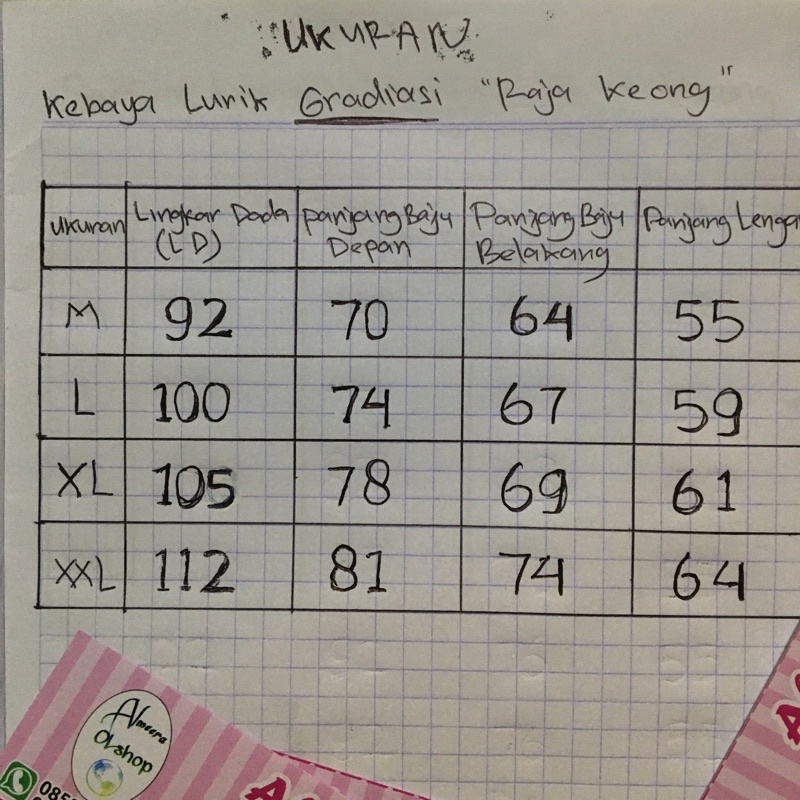 UKURAN
Kebaya Lurik Gradiasi "Raja Keong"
Ukuran Lingkar Dada (LD) Panjang Baju Depan Panjang Baju Belakang Panjang Lenga
M 92 70 64 55
L 100 74 67 59
XL 105 78 69 61
XXL 112 81 74 64
Almeera
OLshop
085